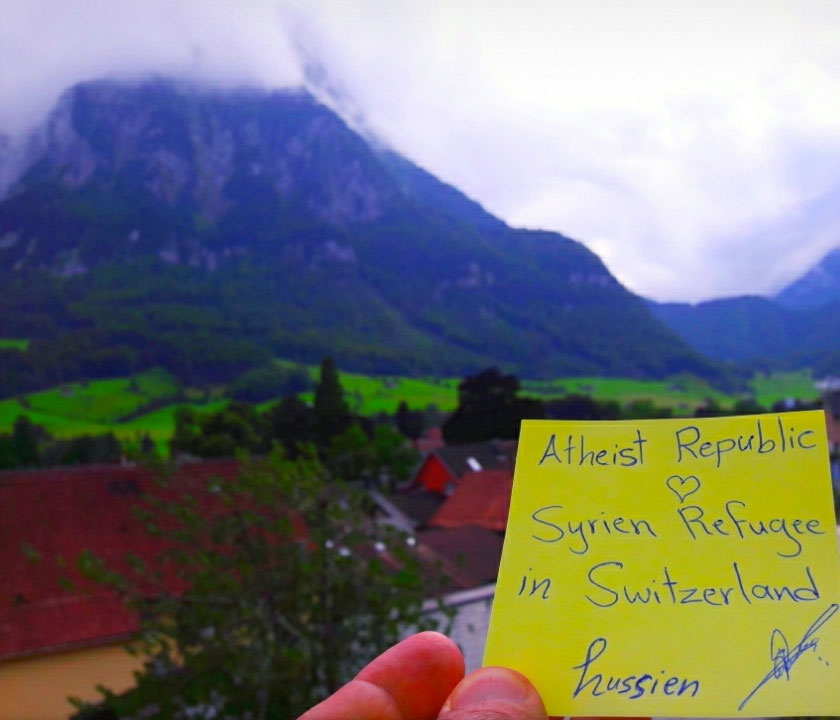 Atheist Republic
♡
Syrien Refugee
in Switzerland
hussien